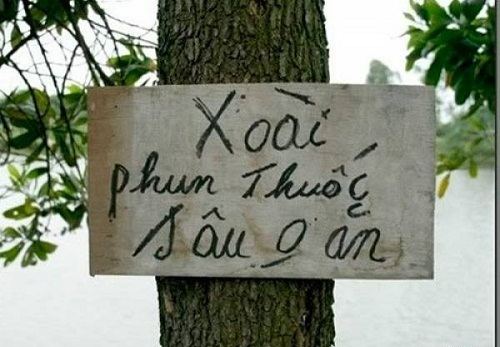 Xoài
phun Thuốc
Sâu o ăn